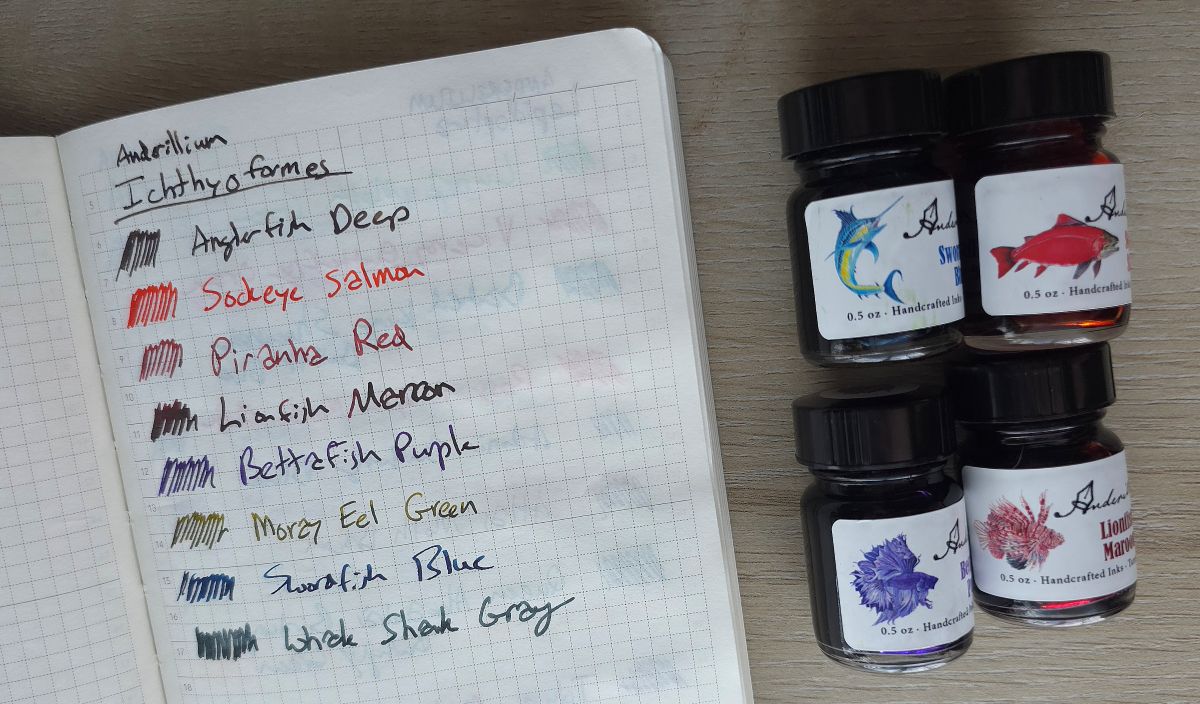 Anderillium
Ichthyoformes
Anglerfish Deep
Sockeye Salmon
Piranha Red
Lionfish Maroon
Bettafish Purple
Moray Eel Green
Swordfish Blue
Whale Shark Gray
5
6
7
8
9
10
11
12
13
14
15
16
17
18
Ander
Swor
Bl
0.5 oz · Handcrafted Inks
Ander
0.5 oz · Handcrafted Ink
An
Be
0.5 oz · Handcrafted
Anderi
Lionfis
Maroo
0.5 oz · Handcrafted Inks · T